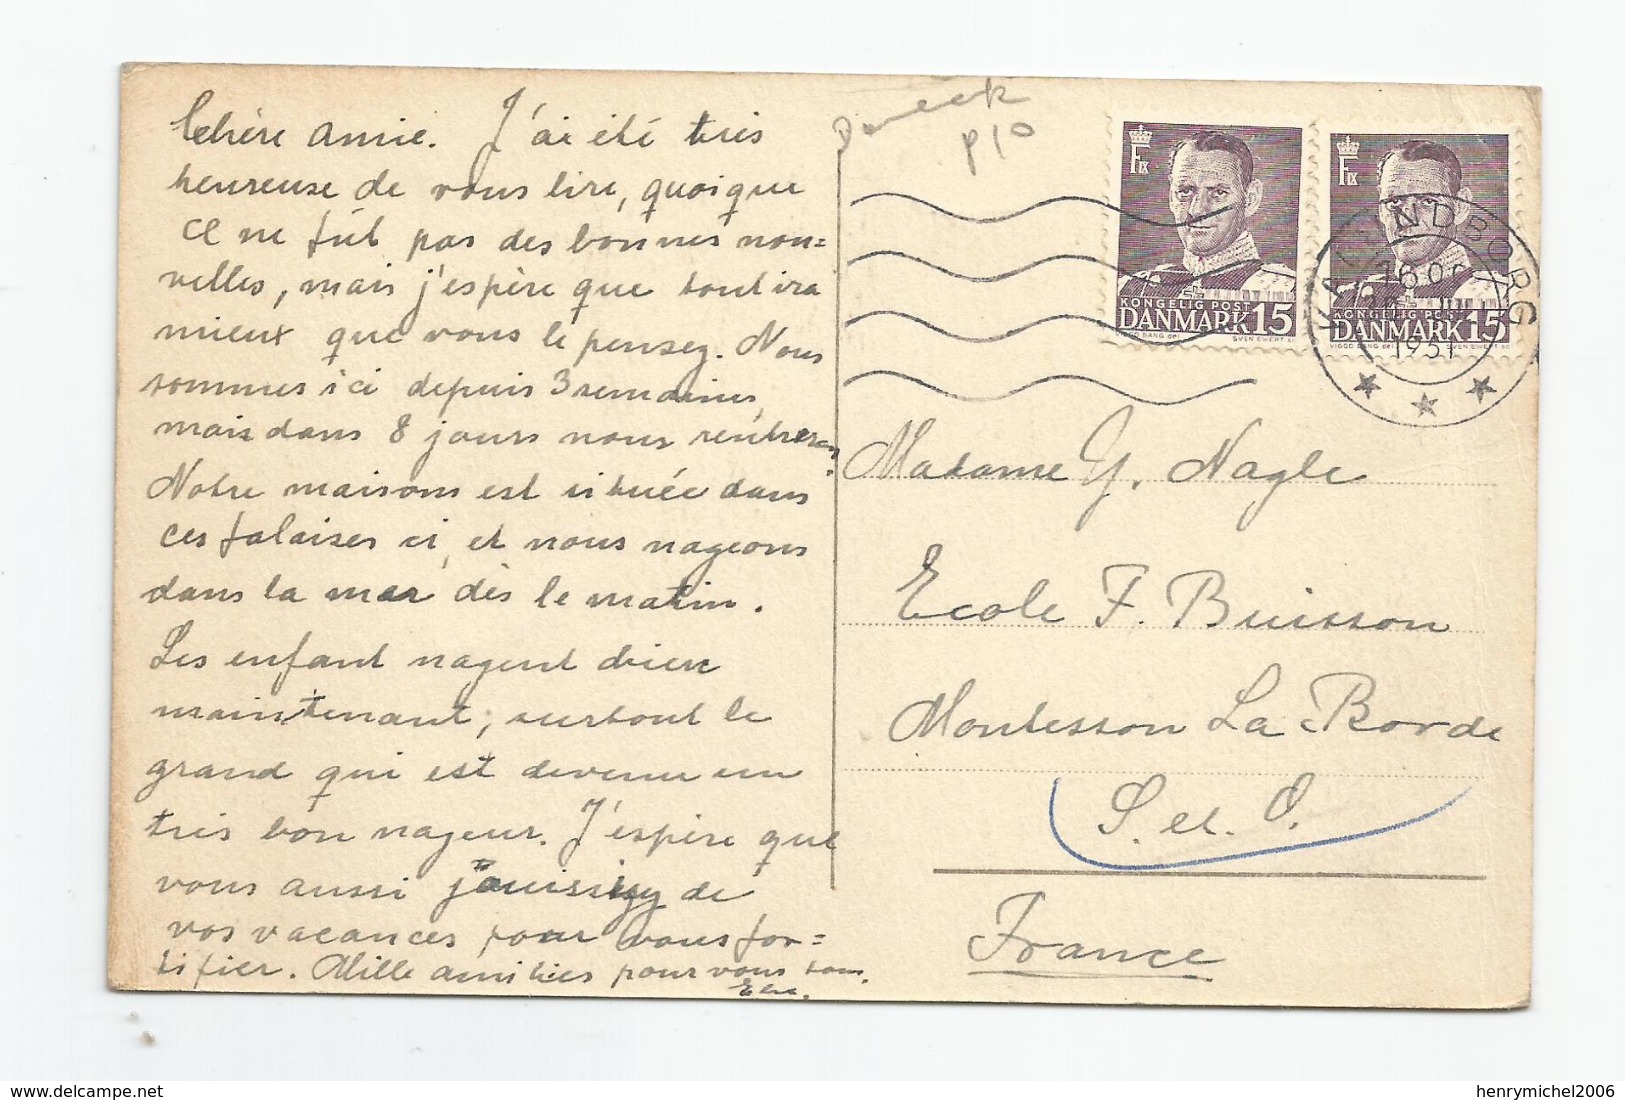 Chère amie. J'ai été très
heureuse de vous lire, quoique
ce ne fût pas des bonnes nou=
velles, mais j'espère que tout ira
mieux que vous le pensez. Nous
sommes ici depuis 3 semaines,
mais dans 8 jours nous rentrerons.
Notre maisons est située dans
ces falaises ci, et nous nageons
dans la mer dès le matin.
Les enfant nagent bien
maintenant, surtout le
grand qui est devenu un
très bon nageur. J'espère que
vous aussi jouissiez de
vos vacances pour vous for=
tifier. Mille amitiés pour vous tous.
Else.
p10
F IX
KONGELIG POST
DANMARK 15
VIGGO BANG del. SVEN EWERT sc.
F IX
KONGELIG POST
DANMARK 15
VIGGO BANG del. SVEN EWERT sc.
KALUNDBORG
1951
Madame Y. Nagle
Ecole F. Buisson
Montesson La Borde
S. et. O.
France
delcampe.net
henrymichel2006